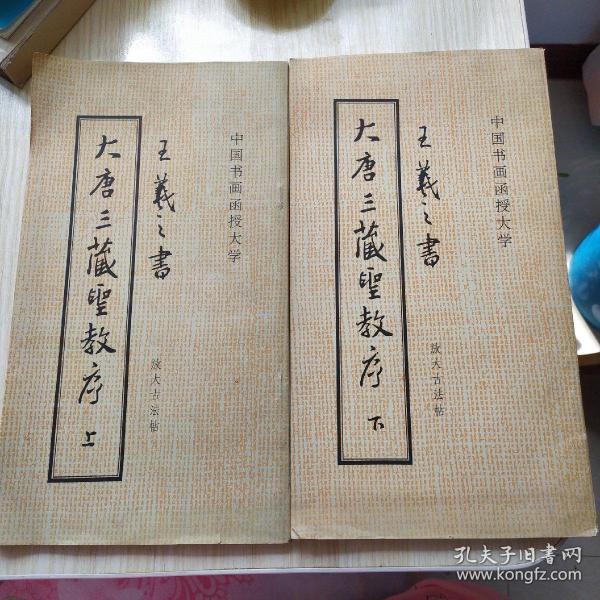 中国书画函授大学
王羲之書
放大古法帖
大唐三藏聖教序 上
中国书画函授大学
王羲之書
放大古法帖
大唐三藏聖教序 下
孔夫子旧書网
www.kongfz.com